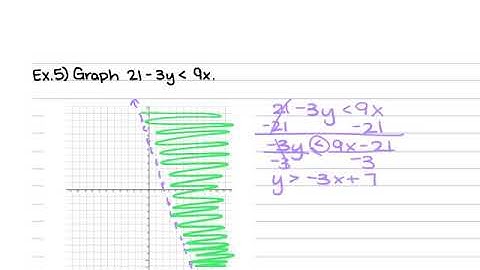 Ex.5) Graph 21-3y < 9x.
21 -3y < 9x
-21 -21
-3y < 9x-21
-3 -3
y > -3x+7